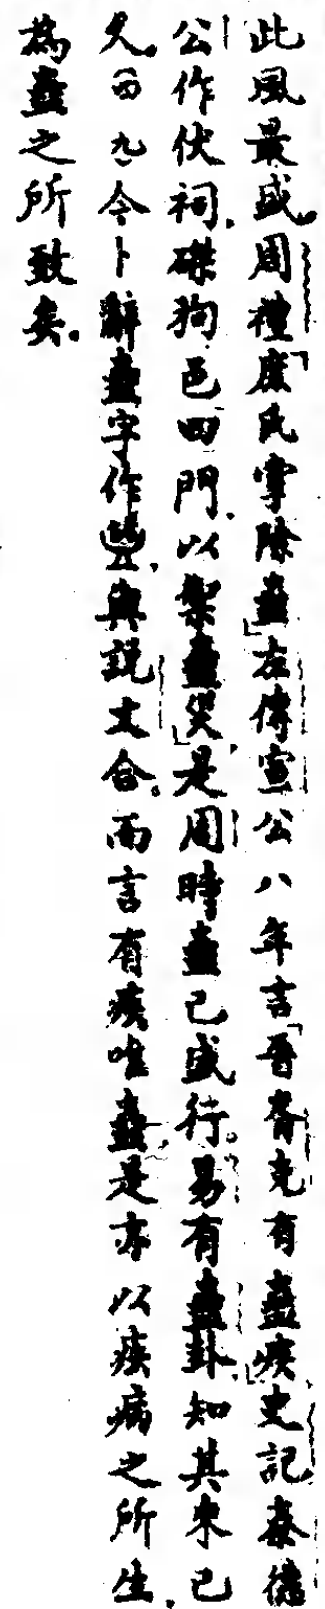 此風最盛周禮「庶氏掌除蠱」左傳宣公八年言「晉胥克有蠱疾」史記秦德
公作伏祠,磔狗邑四門,以禦蠱災」是周時蠱已盛行。易有蠱卦,知其來已
久。(四九)今卜辭蠱字作,與說文合。而言有疾唯蠱,是亦以疾病之所生,
為蠱之所致矣。